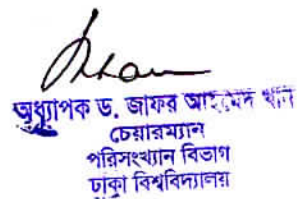 অধ্যাপক ড. জাফর আহমেদ খান
চেয়ারম্যান
পরিসংখ্যান বিভাগ
ঢাকা বিশ্ববিদ্যালয়